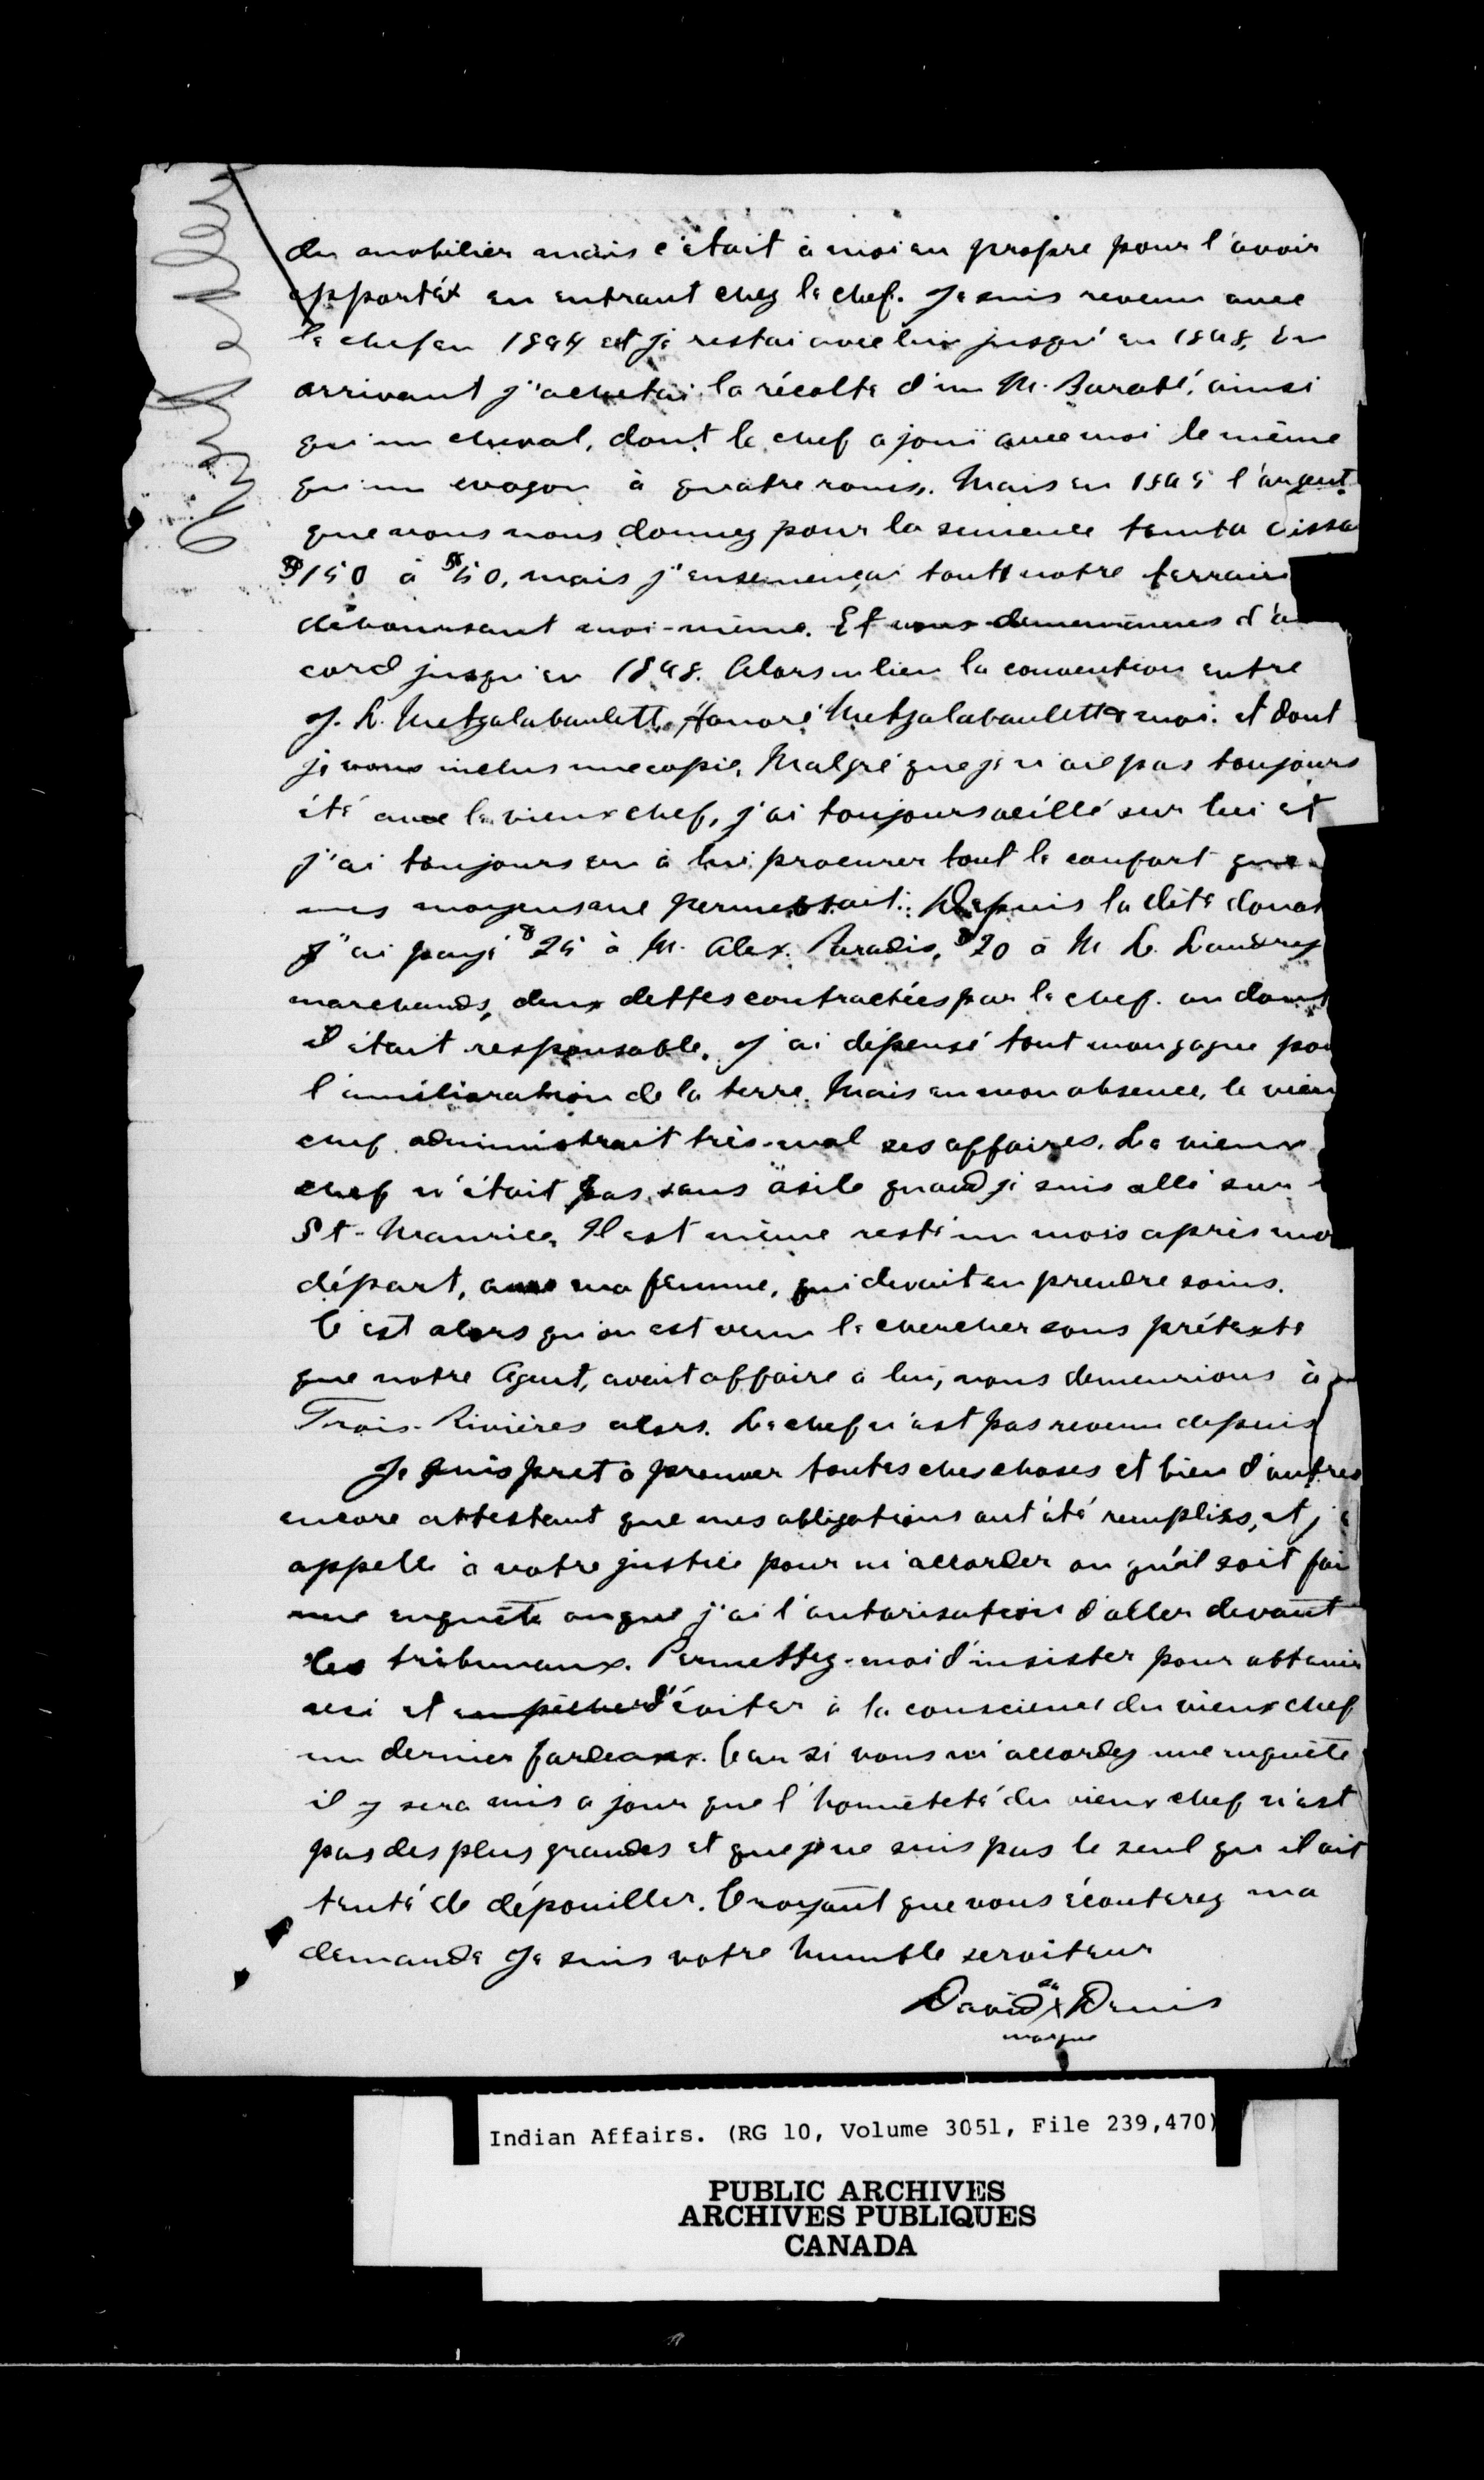 du mobilier mais c'était à moi en propre pour l'avoir
apporté en entrant chez le chef. Je suis revenu avec
le chef en 1894 et je restai avec lui jusqu'en 1898, En
arrivant j'achetai la récolte d'un M. Baratté, ainsi
qu'un cheval, dont le chef a joui avec moi de même
qu'un wagon à quatre roues. Mais en 1895 l'argent
que vous nous donnez pour la semence tomba
$150 à $50, mais j'ensemençai tout notre terrain
déboursant moi-même. Et nous demeurâmes d'a
cord jusqu'en 1898. Alors eu lieu la convention entre
J. L. Metzalabanlett, Honoré Metzalabanlett & moi. et dont
je vous inclus une copie. Malgré que je n'aie pas toujours
été avec le vieux chef, j'ai toujours veillé sur lui et
j'ai toujours eu à lui procurer tout le confort que
mes moyens me permettait. Depuis la dite donat
j'ai payé $25 à M. Alex. Paradis, $20 à M L. Landrey
marchands, deux dettes contractées par le chef. ou dont
il était responsable. J'ai dépensé tout mon gagne pou
l'amélioration de la terre. Mais en mon absence, le vieu
chef administrait très-mal ses affaires. Le vieux
chef n'était pas sans asile quand je suis allé sur
St-Maurice, Il est même resté un mois après mo
départ, avec ma femme, qui devait en prendre soins.
C'est alors qu'on est venu le chercher sous prétexte
que notre Agent, avait affaire à lui, nous demeurions à
Trois-Rivières alors. Le chef n'est pas revenu depuis
Je suis pret à prouver toutes ches choses et bien d'autres
encore attestant que mes obligations ont été remplies, et j
appelle à votre justice pour m'accorder ou qu'il soit fai
une enquête ou que j'ai l'autorisation d'aller devant
les tribunaux. Permettez-moi d'insister pour obtenir
ceci et empêcher d'éviter à la conscience du vieux chef
un dernier fardeaux. Car si vous m'accordez une enquête
il y sera mis a jour que l'honnêteté du vieux chef n'est
pas des plus grandes et que je ne suis pas le seul qu'il ait
tenté de dépouiller. Croyant que vous écouterez ma
demande Je suis votre humble serviteur
David sa X Denis
marque
Indian Affairs. (RG 10, Volume 3051, File 239,470)
PUBLIC ARCHIVES
ARCHIVES PUBLIQUES
CANADA